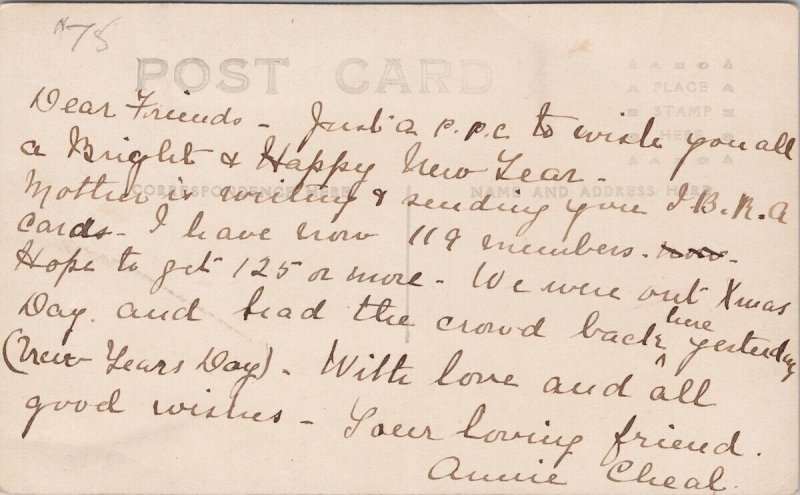 #75
POST CARD
PLACE
STAMP
HERE
CORRESPONDENCE HERE
NAME AND ADDRESS HERE
Dear Friends - Just a p.p.c to wish you all
a Bright & Happy New Year -
Mother is writing & sending you I.B.R.A
cards - I have now 119 members. now -
Hope to get 125 or more - We were out Xmas
Day. and had the crowd back here yesterday
(New Years Day) - With love and all
good wishes - Your loving friend.
Annie Cheal.